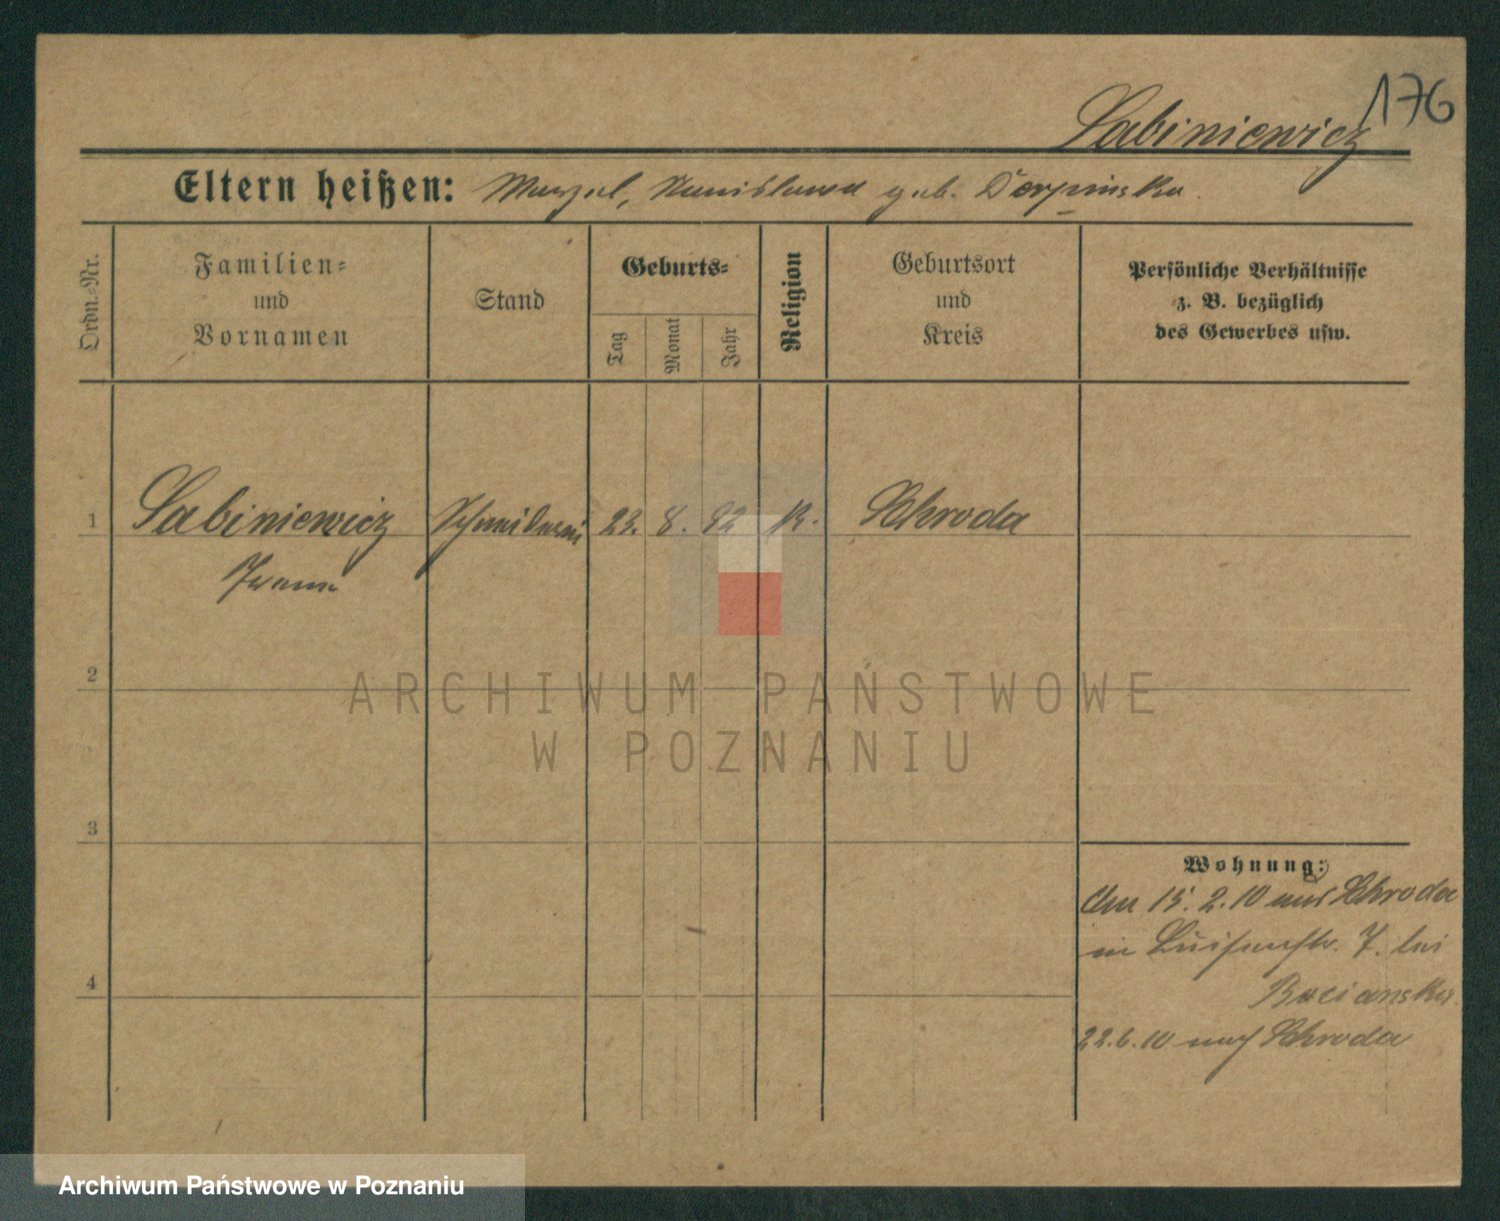 176
Sabiniewicz
Eltern heißen: Marzel, Stanislawa geb. Dorpinska
Ordn.-Nr.
Familien-
und
Vornamen
Stand
Geburts-
Tag
Monat
Jahr
Religion
Geburtsort
und
Kreis
Persönliche Verhältnisse
z. B. bezüglich
des Gewerbes usw.
1 Sabiniewicz 23. 8. 92 K. Schroda
2
3
4
Wohnung:
Am 15. 2. 10 aus Schroda
in Luisenstr. 7. bei
Bocianska.
22.6.10 nach Schroda
ARCHIWUM PAŃSTWOWE
W POZNANIU
Archiwum Państwowe w Poznaniu